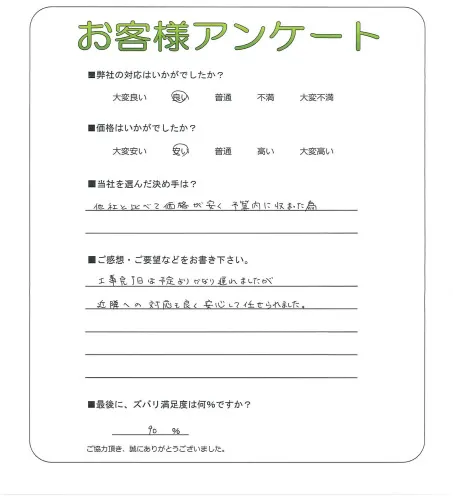 お客様アンケート
■弊社の対応はいかがでしたか？
大変良い 良い 普通 不満 大変不満
■価格はいかがでしたか？
大変安い 安い 普通 高い 大変高い
■当社を選んだ決め手は？
他社と比べて価格が安く予算内に収まった為
■ご感想・ご要望などをお書き下さい。
工事完了日は予定よりかなり遅れましたが
近隣への対応も良く安心して任せられました。
■最後に、ズバリ満足度は何％ですか？
90 %
ご協力頂き、誠にありがとうございました。